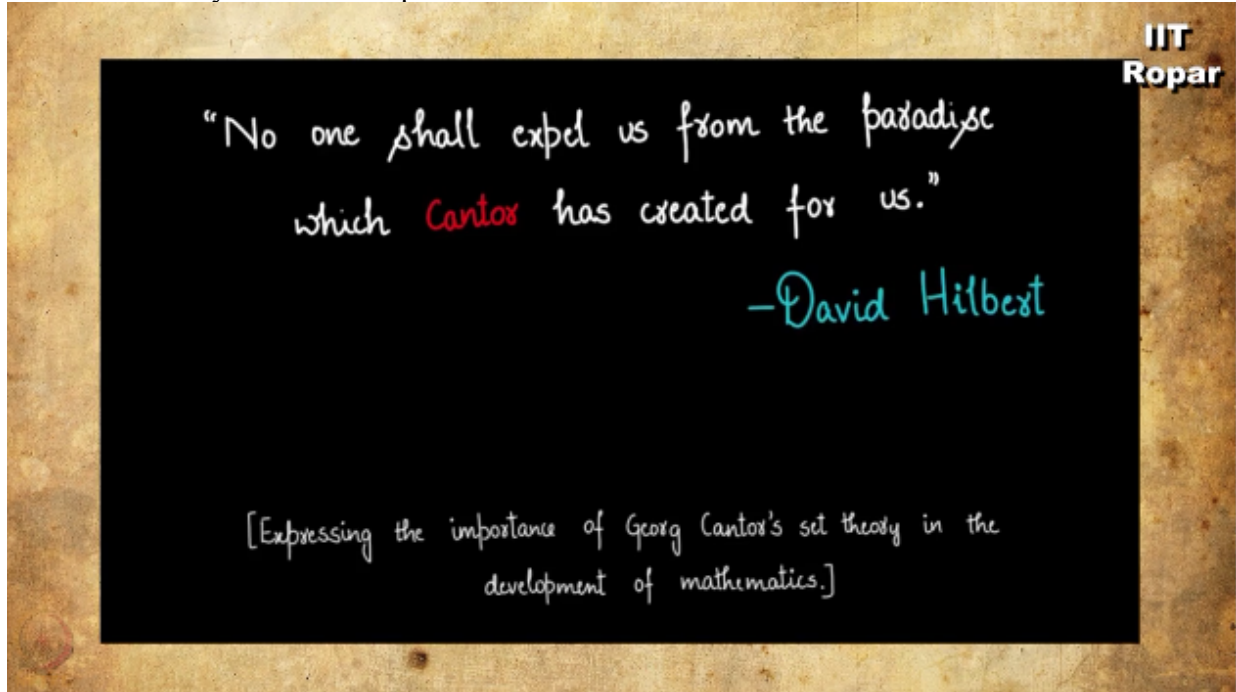 IIT
Ropar
“No one shall expel us from the paradise
which Cantor has created for us.”
–David Hilbert
[Expressing the importance of Georg Cantor's set theory in the
development of mathematics.]